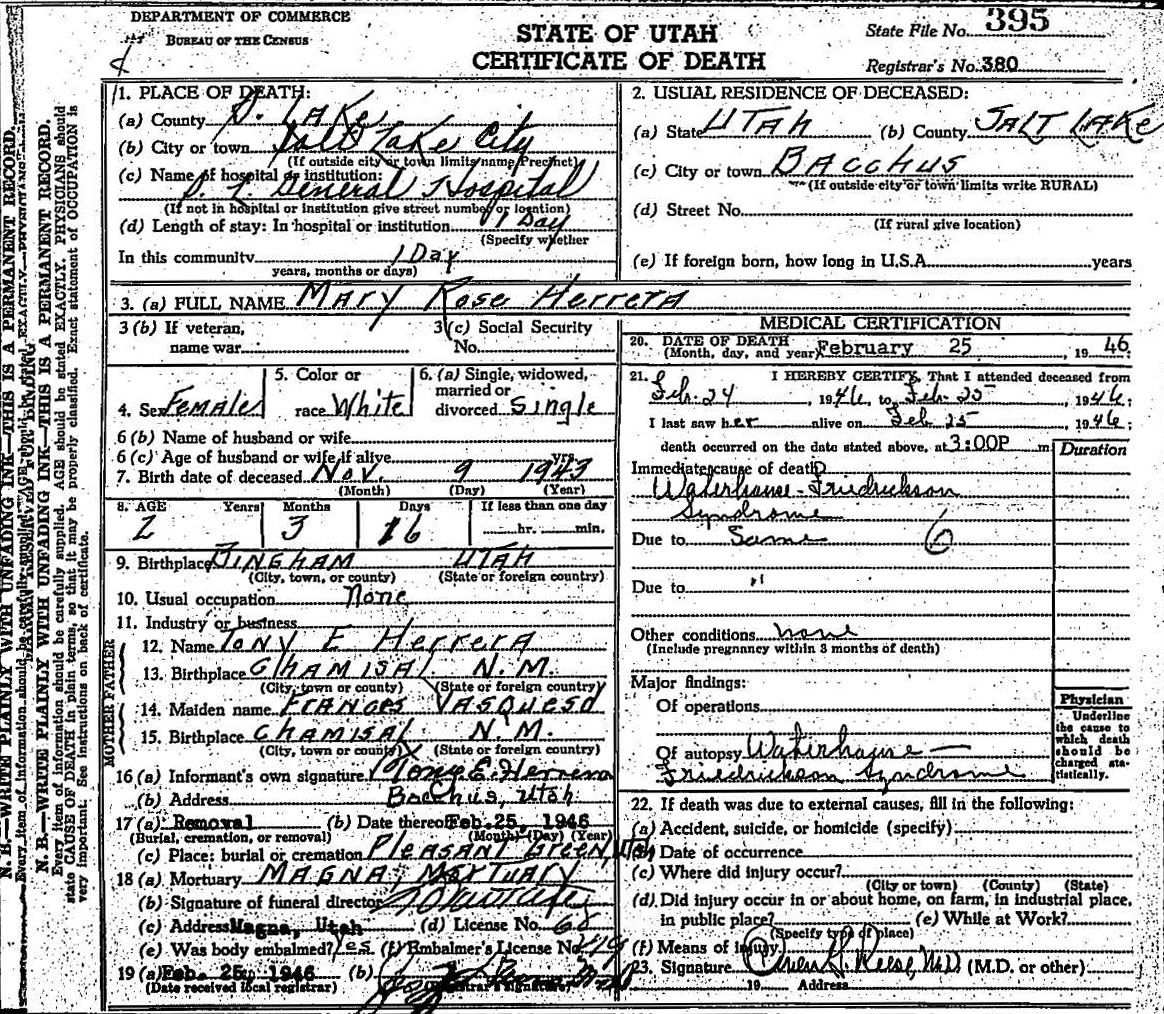 DEPARTMENT OF COMMERCE
BUREAU OF THE CENSUS
STATE OF UTAH
CERTIFICATE OF DEATH
State File No. 395
Registrar's No. 380
N. B.—WRITE PLAINLY WITH UNFADING INK—THIS IS A PERMANENT RECORD.
Every item of information should be carefully supplied. AGE should be stated EXACTLY. PHYSICIANS should
state CAUSE OF DEATH in plain terms, so that it may be properly classified. Exact statement of OCCUPATION is
very important. See instructions on back of certificate.
1. PLACE OF DEATH:
(a) County S. LAKE
(b) City or town Salt Lake City
(If outside city or town limits name Precinct)
(c) Name of hospital or institution:
S. L. General Hospital
(If not in hospital or institution give street number or location)
(d) Length of stay: In hospital or institution 1 Day
(Specify whether
In this community 1 Day
years, months or days)
2. USUAL RESIDENCE OF DECEASED:
(a) State UTAH (b) County SALT LAKE
(c) City or town BACCHUS
(If outside city or town limits write RURAL)
(d) Street No.
(If rural give location)
(e) If foreign born, how long in U.S.A. years
3. (a) FULL NAME Mary Rose Herrera
3 (b) If veteran,
name war
3 (c) Social Security
No.
4. Sex Female
5. Color or
race White
6. (a) Single, widowed,
married or
divorced Single
6 (b) Name of husband or wife
6 (c) Age of husband or wife if alive yrs.
7. Birth date of deceased Nov. 9 1943
(Month) (Day) (Year)
8. AGE Years Months Days If less than one day
2 3 16 hr. min.
9. Birthplace BINGHAM UTAH
(City, town, or county) (State or foreign country)
10. Usual occupation None
11. Industry or business
FATHER
12. Name Tony E Herrera
13. Birthplace CHAMISAL N. M.
(City, town or county) (State or foreign country)
MOTHER
14. Maiden name FRANCES VASQUESA
15. Birthplace CHAMISAL N. M.
(City, town or county) (State or foreign country)
16 (a) Informant's own signature Tony E. Herrera
(b) Address Bacchus, Utah
17 (a) Removal (b) Date thereof Feb. 25, 1946
(Burial, cremation, or removal) (Month) (Day) (Year)
(c) Place: burial or cremation PLEASANT GREEN, Utah
18 (a) Mortuary MAGNA MORTUARY
(b) Signature of funeral director
(c) Address Magna, Utah (d) License No. 68
(e) Was body embalmed? Yes (f) Embalmer's License No.
19 (a) Feb. 25, 1946 (b)
(Date received local registrar) (Registrar's signature)
MEDICAL CERTIFICATION
20. DATE OF DEATH
(Month, day, and year) February 25, 1946
21. I HEREBY CERTIFY, That I attended deceased from
Feb. 24, 1946, to Feb. 25, 1946;
I last saw her alive on Feb 25, 1946;
death occurred on the date stated above, at 3:00P m
Duration
Immediate cause of death
Waterhouse-Fridrickson
Syndrome
Due to Same 6
Due to "
Other conditions none
(Include pregnancy within 3 months of death)
Major findings:
Of operations
Of autopsy Waterhouse—
Friedrickson Syndrome
Physician
Underline
the cause to
which death
should be
charged sta-
tistically.
22. If death was due to external causes, fill in the following:
(a) Accident, suicide, or homicide (specify)
(b) Date of occurrence
(c) Where did injury occur?
(City or town) (County) (State)
(d) Did injury occur in or about home, on farm, in industrial place,
in public place? (e) While at Work?
(Specify type of place)
(f) Means of injury
23. Signature Owen G. Reese, M.D. (M.D. or other)
19 Address